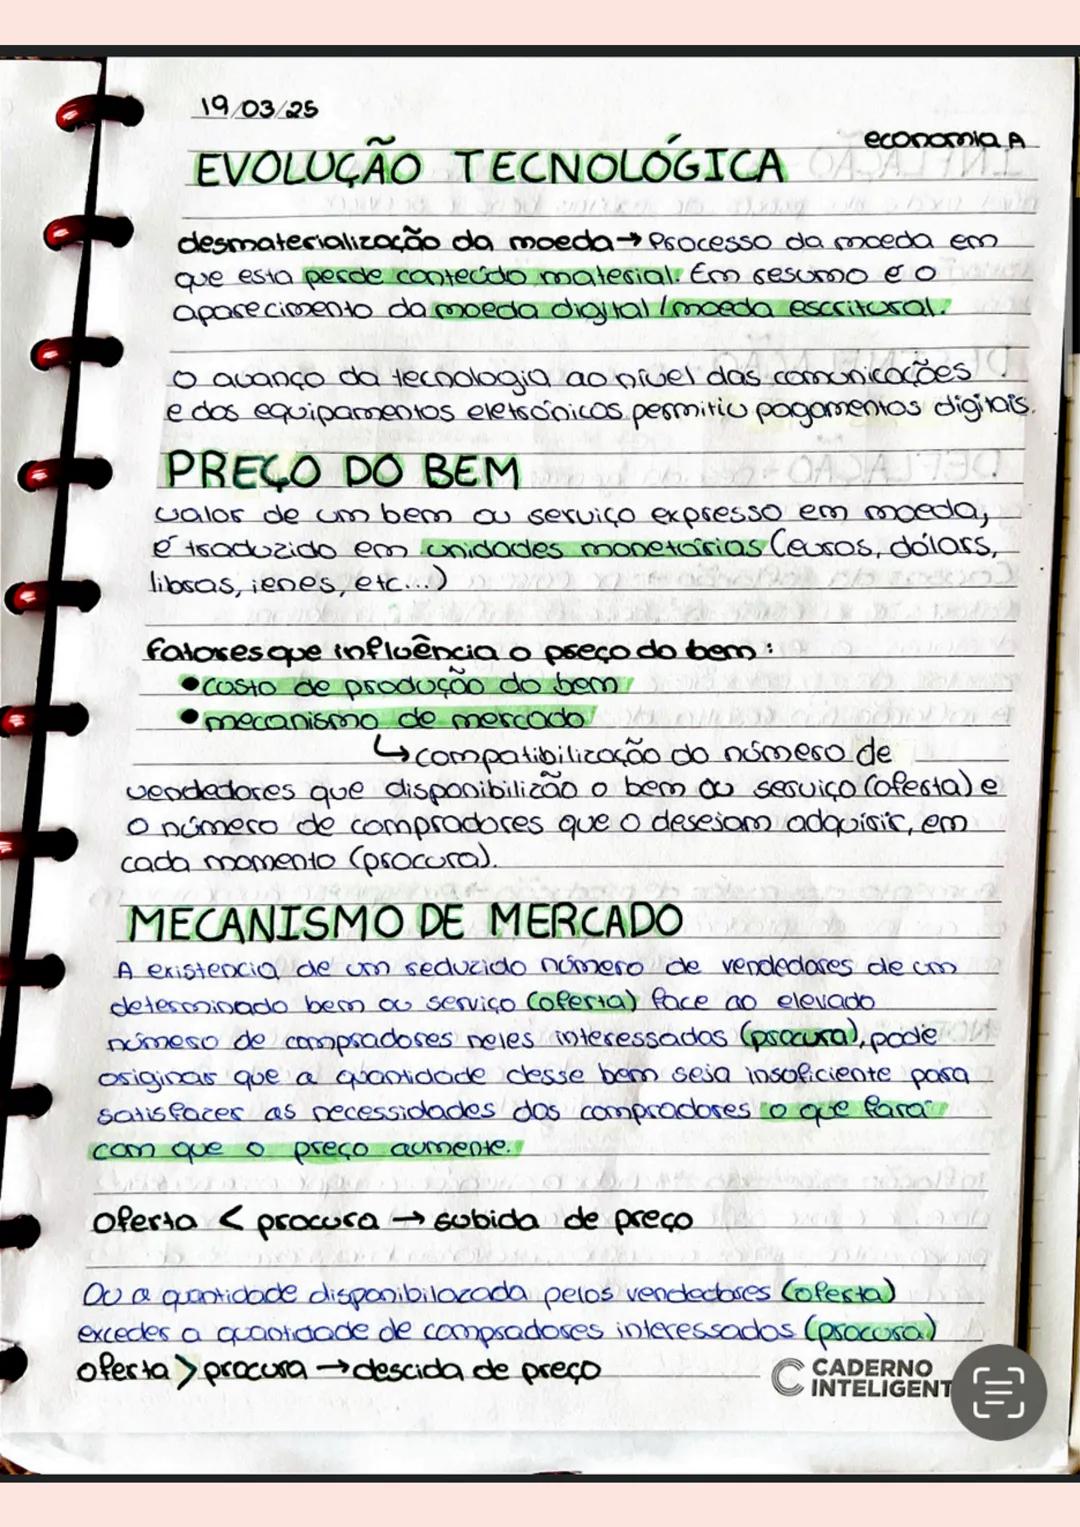 19/03/25
economia A
EVOLUÇÃO TECNOLÓGICA
desmaterialização da moeda → Processo da moeda em
que esta perde conteúdo material. Em resumo é o
aparecimento da moeda digital / moeda escritural.
O avanço da tecnologia ao nível das comunicações
e dos equipamentos eletrónicos permitiu pagamentos digitais.
PREÇO DO BEM
valor de um bem ou serviço expresso em moeda,
é traduzido em unidades monetárias (euros, dólars,
libras, ienes, etc...)
fatores que influência o preço do bem:
• custo de produção do bem
• mecanismo de mercado
↳ compatibilização do número de
vendedores que disponibilizão o bem ou serviço (oferta) e
o número de compradores que o desejam adquirir, em
cada momento (procura).
MECANISMO DE MERCADO
A existencia de um reduzido número de vendedores de um
determinado bem ou serviço (oferta) face ao elevado
número de compradores neles interessados (procura), pode
originar que a quantidade desse bem seja insuficiente para
satisfazer as necessidades dos compradores o que fará
com que o preço aumente.
oferta < procura → subida de preço
Ou a quantidade disponibilazada pelos vendedores (oferta)
exceder a quantidade de compradores interessados (procura)
oferta > procura → descida de preço
CADERNO
INTELIGENT